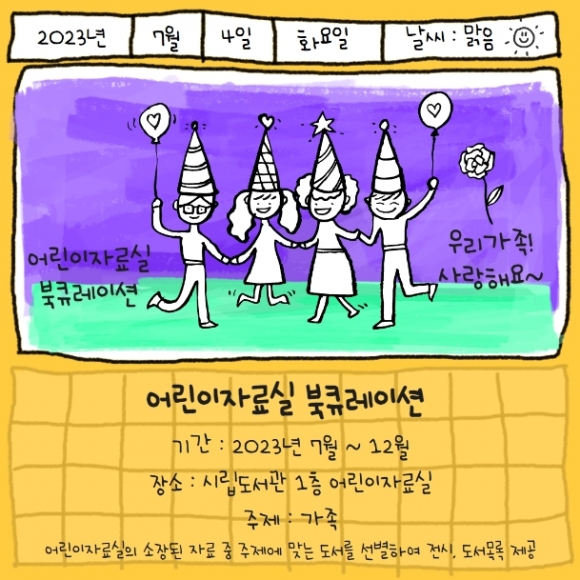 2023년 7월 4일 화요일 날씨 : 맑음
어린이자료실
북큐레이션
우리가족!
사랑해요~
어린이자료실 북큐레이션
기간 : 2023년 7월 ~ 12월
장소 : 시립도서관 1층 어린이자료실
주제 : 가족
어린이자료실의 소장된 자료 중 주제에 맞는 도서를 선별하여 전시, 도서목록 제공